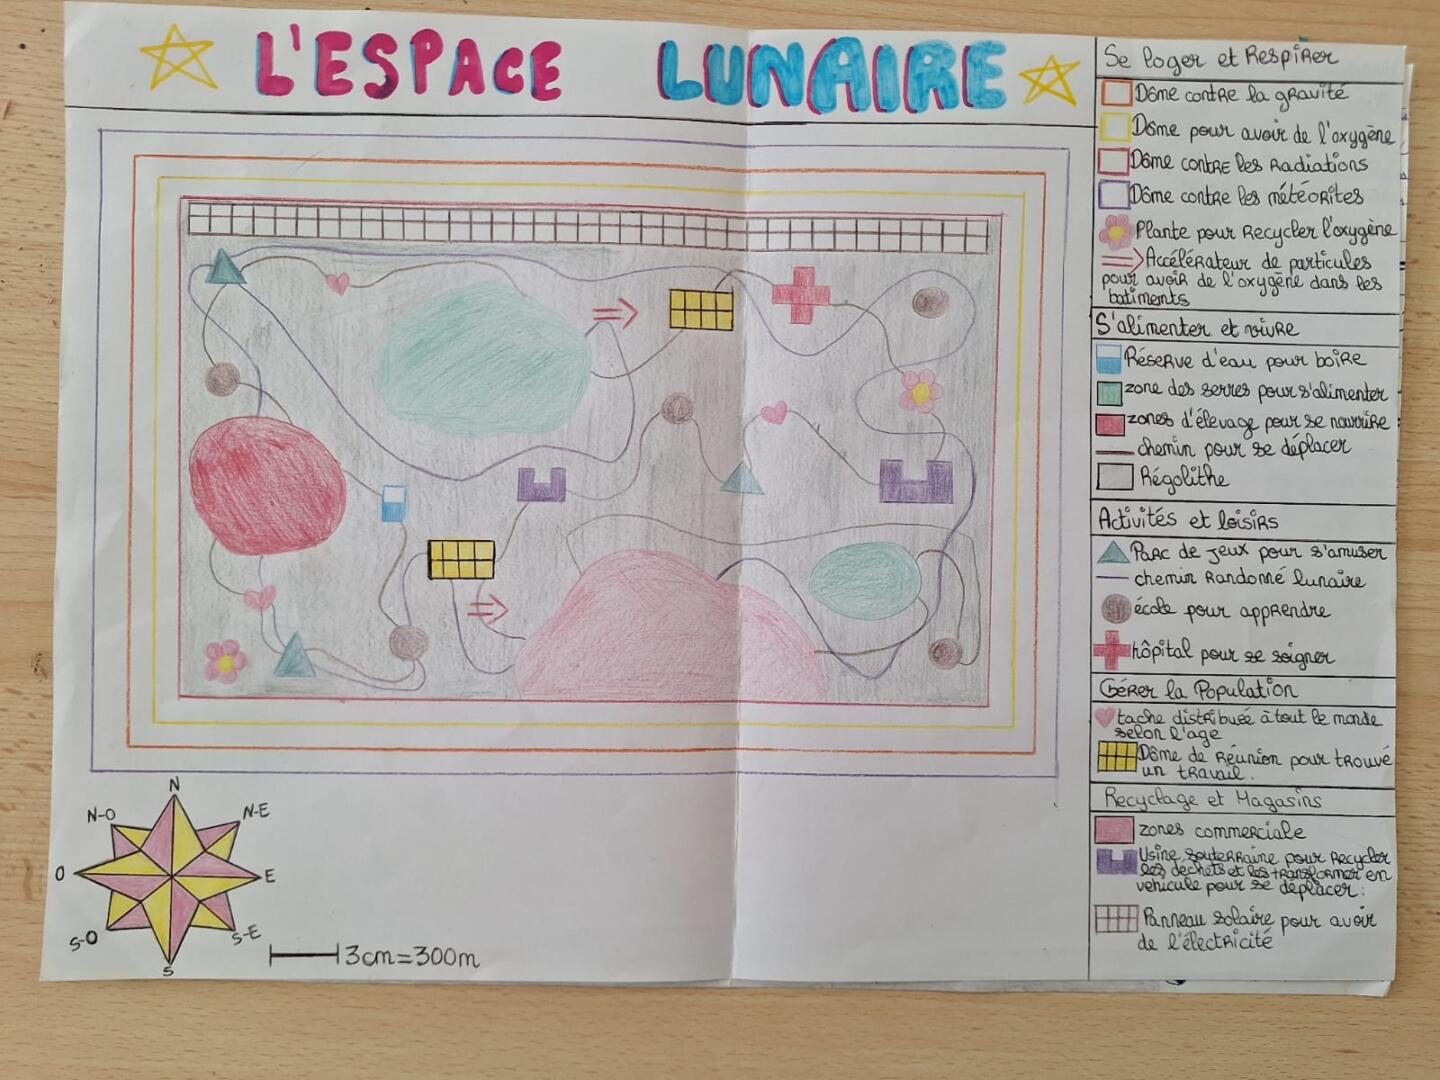 L'ESPACE LUNAIRE
Se loger et Respirer
Dôme contre la gravité
Dôme pour avoir de l'oxygène
Dôme contre les radiations
Dôme contre les météorites
Plante pour Recycler l'oxygène
Accélérateur de particules
pour avoir de l'oxygène dans les
batiments
S'alimenter et vivre
Réserve d'eau pour boire
zone des serres pour s'alimenter
zones d'élevage pour se nourrire
chemin pour se déplacer
Régolithe
Activités et loisirs
Parc de jeux pour s'amuser
chemin Randonné lunaire
école pour apprendre
hôpital pour se soigner
Gérer la Population
tache distribuée à tout le monde
selon l'age
Dôme de Réunion pour trouvé
un travail.
Recyclage et Magasins
zones commerciale
Usine souterraine pour Recycler
les dechets et les transformer en
vehicule pour se déplacer.
Panneau solaire pour avoir
de l'électricité
N
N-O
N-E
O
E
S-O
S-E
S
3cm=300m